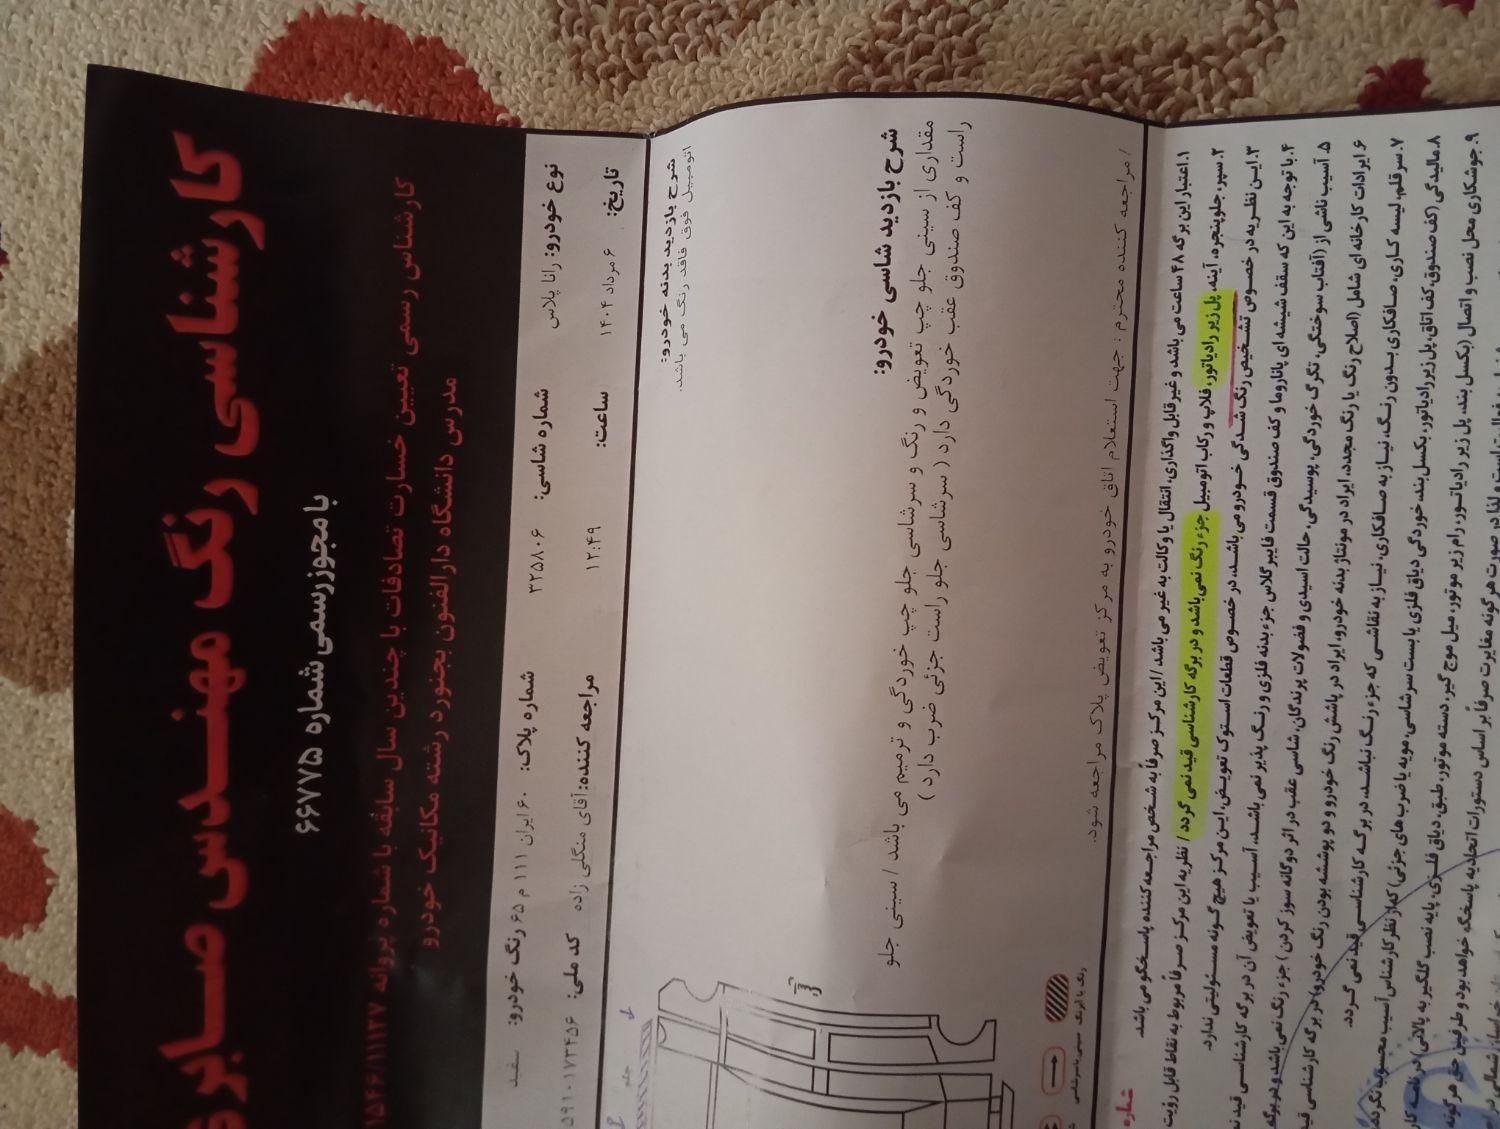 کارشناسی رنگ مهندس صابری
با مجوز رسمی شماره ۶۶۷۷۵
کارشناس رسمی تعیین خسارت تصادفات با چندین سال سابقه با شماره پروانه ۱۵۴۶/۱۱۱۲۷
مدرس دانشگاه دارالفنون بجنورد رشته مکانیک خودرو
نوع خودرو: رانا پلاس شماره شاسی: ۳۲۵۸۰۶ شماره پلاک: ۶۰ ایران ۱۱۱ م ۶۵ رنگ خودرو: سفید
تاریخ: ۶ مرداد ۱۴۰۴ ساعت: ۱۲:۴۹ مراجعه کننده: آقای منگلی زاده کد ملی: ۵۹۱۰۱۷۳۴۵۶
شرح بازدید بدنه خودرو:
اتومبیل فوق فاقد رنگ می باشد.
شرح بازدید شاسی خودرو:
مقداری از سینی جلو چپ تعویض و رنگ و سرشاسی جلو چپ خوردگی و ترمیم می باشد / سینی جلو
راست و کف صندوق عقب خوردگی دارد ( سرشاسی جلو راست جزئی ضرب دارد )
/ مراجعه کننده محترم : جهت استعلام اتاق خودرو به مرکز تعویض پلاک مراجعه شود.
۱. اعتبار این برگه ۴۸ ساعت می باشد و غیر قابل واگذاری، انتقال یا وکالت به غیر می باشد / این مرکز صرفاً به شخص مراجعه کننده پاسخگو می باشد.
۲. سپر، جلوپنجره، آینه، پل زیر رادیاتور، فلاپ و رکاب اتومبیل جزء رنگ نمی باشد و در برگه کارشناسی قید نمی گردد / نظریه این مرکز صرفاً مربوط به نقاط قابل رؤیت
۳. این نظریه در خصوص تشخیص رنگ شدگی خودرو می باشد، در خصوص قطعات استوک تعویض، این مرکز هیچ گونه مسئولیتی ندارد.
۴. با توجه به این که سقف شیشه ای پاناروما و کف صندوق قسمت فایبرگلاس جزء بدنه فلزی و رنگ پذیر نمی باشد، آسیب یا تعویض آن در برگه کارشناسی قید
۵. آسیب ناشی از (آفتاب سوختگی، تگرگ خوردگی، پوسیدگی، حالت اسیدی و فضولات پرندگان، شاسی عقب در اثر دوگانه سوز کردن) جزء رنگ نمی باشد و در برگه
۶. ایرادات کارخانه ای شامل (اصلاح رنگ یا رنگ مجدد، ایراد در مونتاژ بدنه خودرو، ایراد در پاشش رنگ خودرو و دو پوششه بودن رنگ خودرو) در برگه کارشناسی قید
۷. سرقلم، لیسه کاری، صافکاری بدون رنگ، نیاز به صافکاری، نیاز به نقاشی که جزء رنگ نباشد، در برگه کارشناسی قید نمی گردد.
۸. مالیدگی (کف صندوق، کف اتاق، پل زیر رادیاتور، بکسل بند، خوردگی دیاق فلزی یا بست سرشاسی، مویه یا ضرب های جزئی) که از نظر کارشناس آسیب محسوب نگردد،
۹. جوشکاری محل نصب و اتصال (بکسل بند، پل زیر رادیاتور، رام زیر موتور، میل موج گیر، دسته موتور، طبق، دیاق فلزی، پایه نصب گلگیر به پالانی) در نامه
در صورت هرگونه مغایرت صرفاً بر اساس دستورات اتحادیه پاسخگو خواهد بود و طرفین حق هرگونه
جلو
رنگ یا ابرنگ
سینی یا سرشاسی
شماره